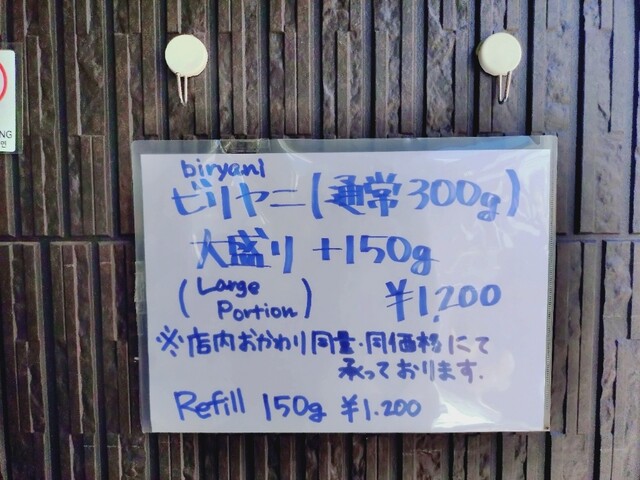 biryani
ビリヤニ(通常300g)
大盛り +150g
(Large Portion) ¥1,200
※店内おかわり同量・同価格にて
承っております.
Refill 150g ¥1.200
NG